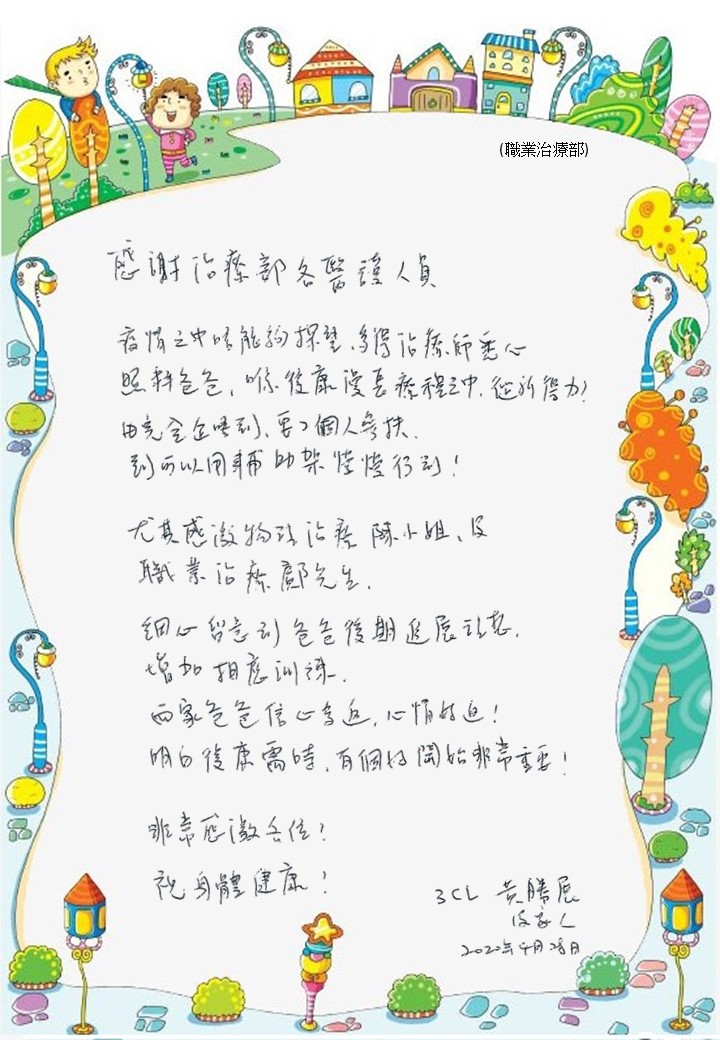 (職業治療部)
感謝治療部各醫護人員
疫情之中唔能夠探望，多得治療師悉心
照料爸爸，喺復康漫長療程之中，從新得力！
由完全企唔到，要2個人攙扶，
到可以用輔助架慢慢行到！
尤其感激物理治療陳小姐、及
職業治療鄺先生，
細心留意到爸爸後期進展狀態，
增加相應訓練，
而家爸爸信心多返，心情好返！
明白復康需時，有個好開始非常重要！
非常感激各位！
祝身體健康！
3CL 黃勝展
及家人
2020年4月28日